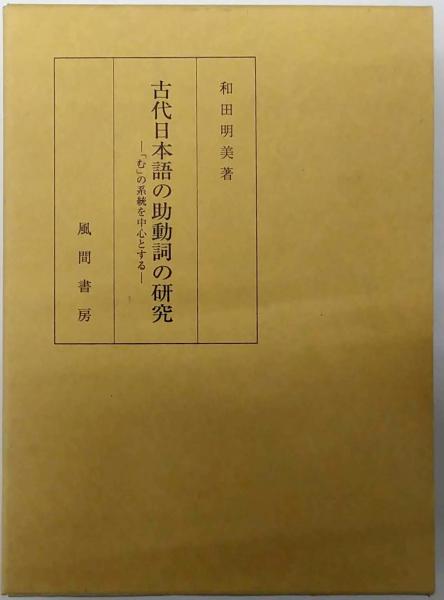 和田明美著
古代日本語の助動詞の研究
―「む」の系統を中心とする―
風間書房